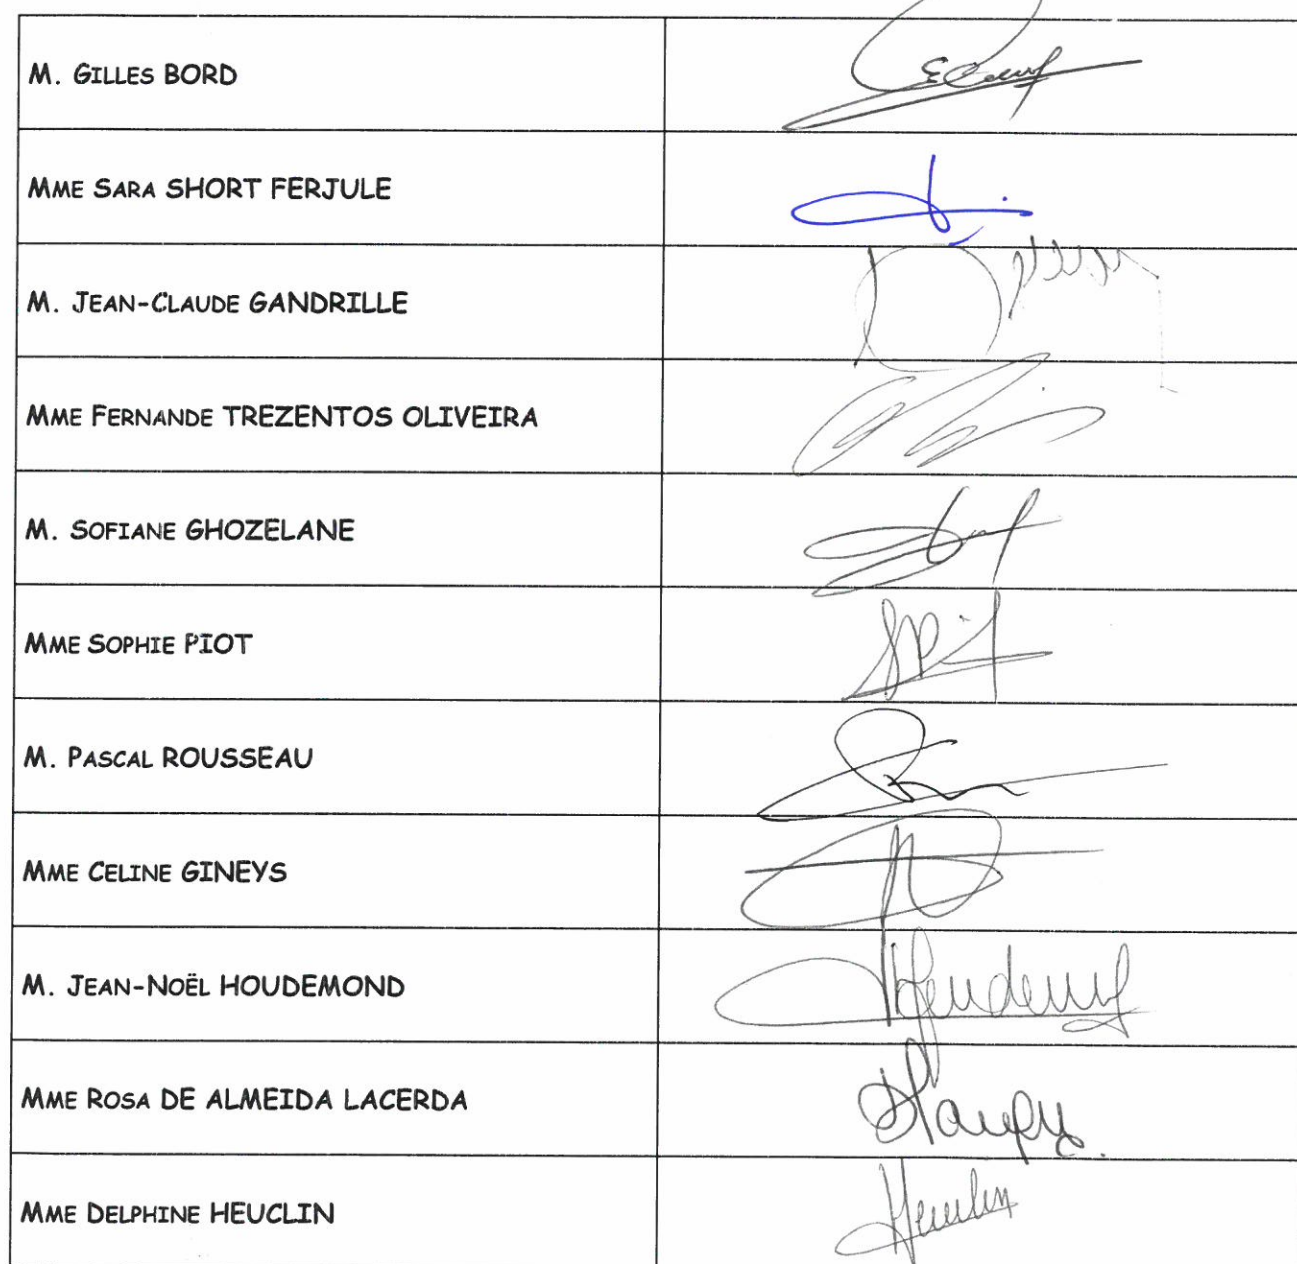 M. GILLES BORD
MME SARA SHORT FERJULE
M. JEAN-CLAUDE GANDRILLE
MME FERNANDE TREZENTOS OLIVEIRA
M. SOFIANE GHOZELANE
MME SOPHIE PIOT
M. PASCAL ROUSSEAU
MME CELINE GINEYS
M. JEAN-NOËL HOUDEMOND
MME ROSA DE ALMEIDA LACERDA
MME DELPHINE HEUCLIN